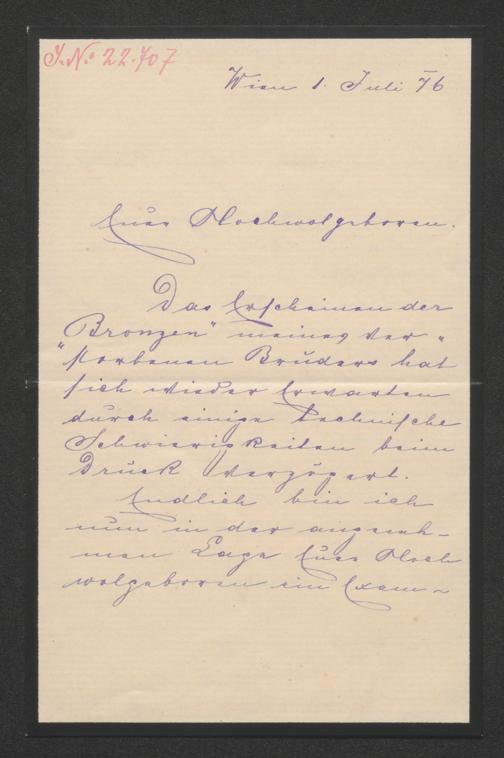 J. N. 22.707
Wien 1. Juli 76
Euer Hochwolgeboren.
Das Erscheinen der
"Bronzen" meines ver-
storbenen Bruders hat
sich wieder Erwarten
durch einige technische
Schwierigkeiten beim
Druck verzögert.
Endlich bin ich
nun in der angeneh-
men Lage Euer Hoch
wolgeboren ein Exem-